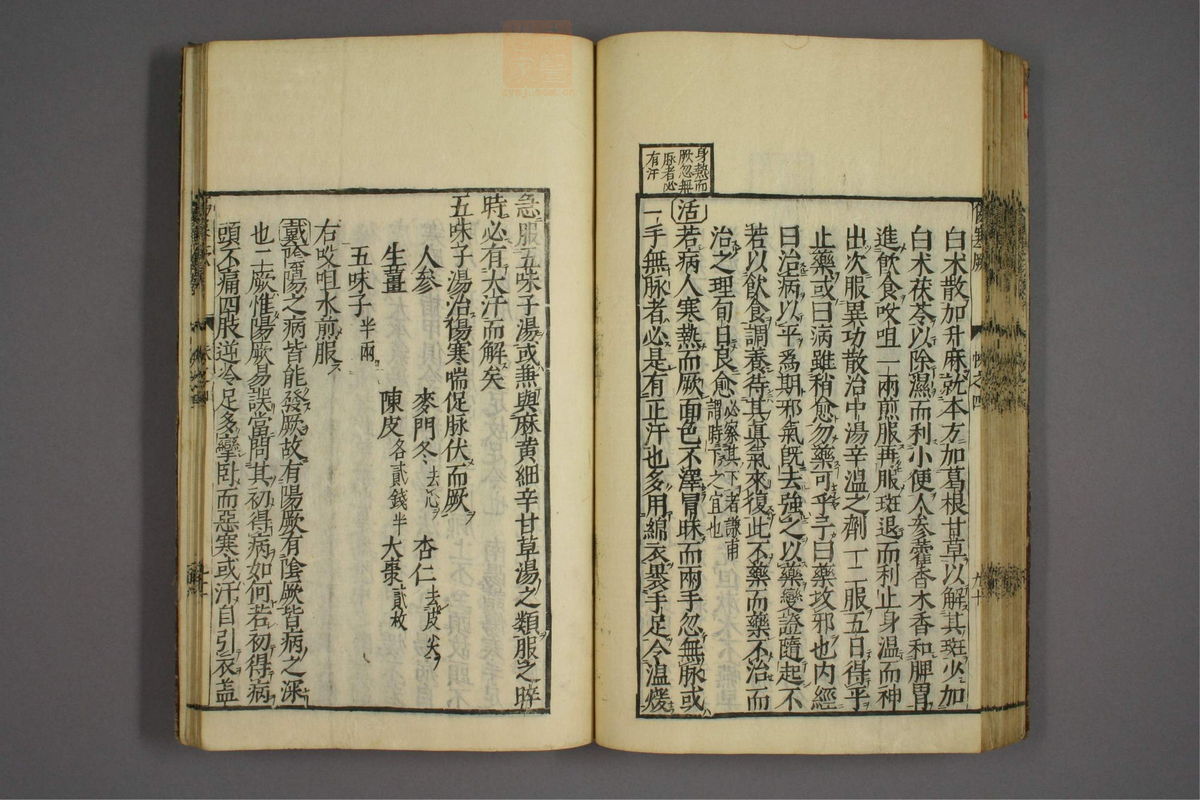 白术散加升麻就本方加葛根甘草以解其斑少加
白术茯苓以除濕而利小便人參藿香木香和脾胃
進飲食㕮咀一兩煎服再服斑退而利止身温而神
出次服異功散治中湯辛温之劑一二服五日得平
止藥或曰病雖稍愈勿藥可乎予曰藥攻邪也内經
曰治病以平為期邪氣既去強之以藥變證隨起不
若以飲食調養待其真氣來復此不藥而藥不治而
治之理旬日良愈必察其下者謙甫謂時下之宜也
身熱而
厥忽無
脉者必
有汗
活若病人寒熱而厥面色不澤冒昧而兩手忽無脉或
一手無脉者必是有正汗也多用綿衣裹手足令温煖
急服五味子湯或兼與麻黄細辛甘草湯之類服之晬
時必有大汗而解矣
五味子湯治傷寒喘促脉伏而厥
人参 麥門冬去心 杏仁去皮尖
生薑 陳皮各貳錢半 大棗貳枚
五味子半兩
右㕮咀水煎服
戴陰陽之病皆能發厥故有陽厥有陰厥皆病之深
也二厥惟陽厥易誤當問其初得病如何若初得病
頭不痛四肢逆冷足多攣卧而惡寒或汗自引衣盖